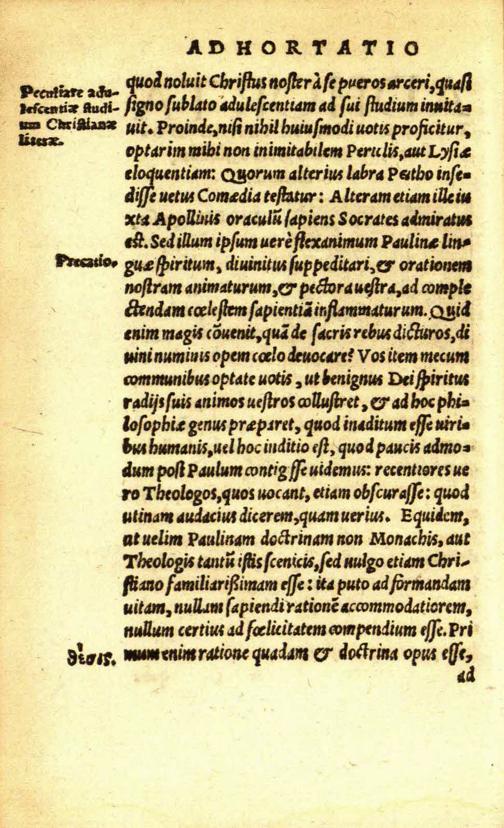 ADHORTATIO
Peculiare adu-
lescentiæ studi-
um Christianæ
literæ.
quod noluit Christus noster à se pueros arceri, quasi
signo sublato adulescentiam ad sui studium inuita=
uit. Proinde, nisi nihil huiusmodi uotis proficitur,
optarim mihi non inimitabilem Periclis, aut Lysiæ
eloquentiam: Quorum alterius labra Peitho inse=
disse uetus Comædia testatur: Alteram etiam ille iu
xta Apollinis oraculũ sapiens Socrates admiratus
est. Sed illum ipsum uerè flexanimum Paulinæ lin=
Precatio.
guæ spiritum, diuinitus suppeditari, & orationem
nostram animaturum, & pectora uestra, ad comple
ctendam cœlestem sapientiã inflammaturum. Quid
enim magis cõuenit, quã de sacris rebus dicturos, di
uini numinis opem cœlo deuocare? Vos item mecum
communibus optate uotis, ut benignus Dei spiritus
radijs suis animos uestros collustret, & ad hoc phi=
losophiæ genus præparet, quod inaditum esse uiri=
bus humanis, uel hoc inditio est, quod paucis admo=
dum post Paulum contigisse uidemus: recentiores ue
ro Theologos, quos uocant, etiam obscurasse: quod
utinam audacius dicerem, quam uerius. Equidem,
ut uelim Paulinam doctrinam non Monachis, aut
Theologis tantũ istis scenicis, sed uulgo etiam Chri-
stiano familiarißimam esse: ita puto ad formandam
uitam, nullam sapiendi rationẽ accommodatiorem,
nullum certius ad fœlicitatem compendium esse. Pri
θέσις.
mum enim ratione quadam & doctrina opus esse,
ad